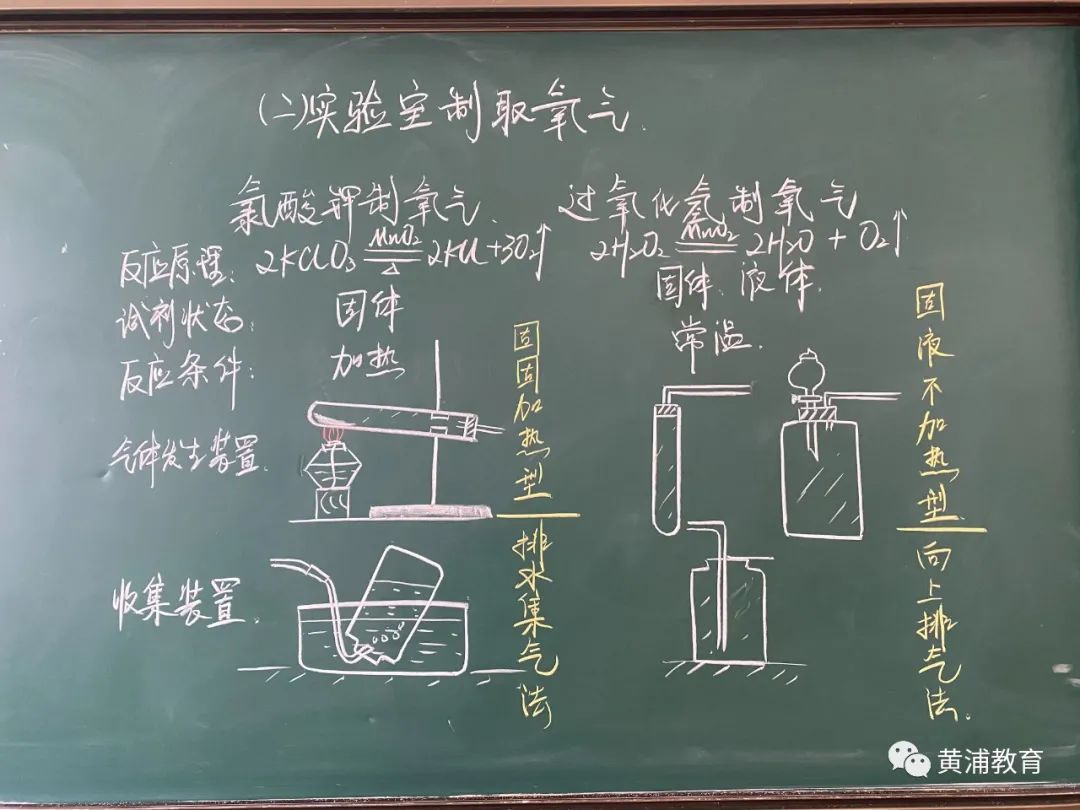 (二)实验室制取氧气.
氯酸钾制氧气. 过氧化氢制氧气
反应原理: 2KClO₃ MnO₂ ══ △ 2KCl+3O₂↑ 2H₂O₂ MnO₂ ══ 2H₂O + O₂↑
试剂状态: 固体 固体、液体.
反应条件: 加热 常温.
气体发生装置.
收集装置.
固固加热型
排水集气法
固液不加热型.
向上排气法.
黄浦教育